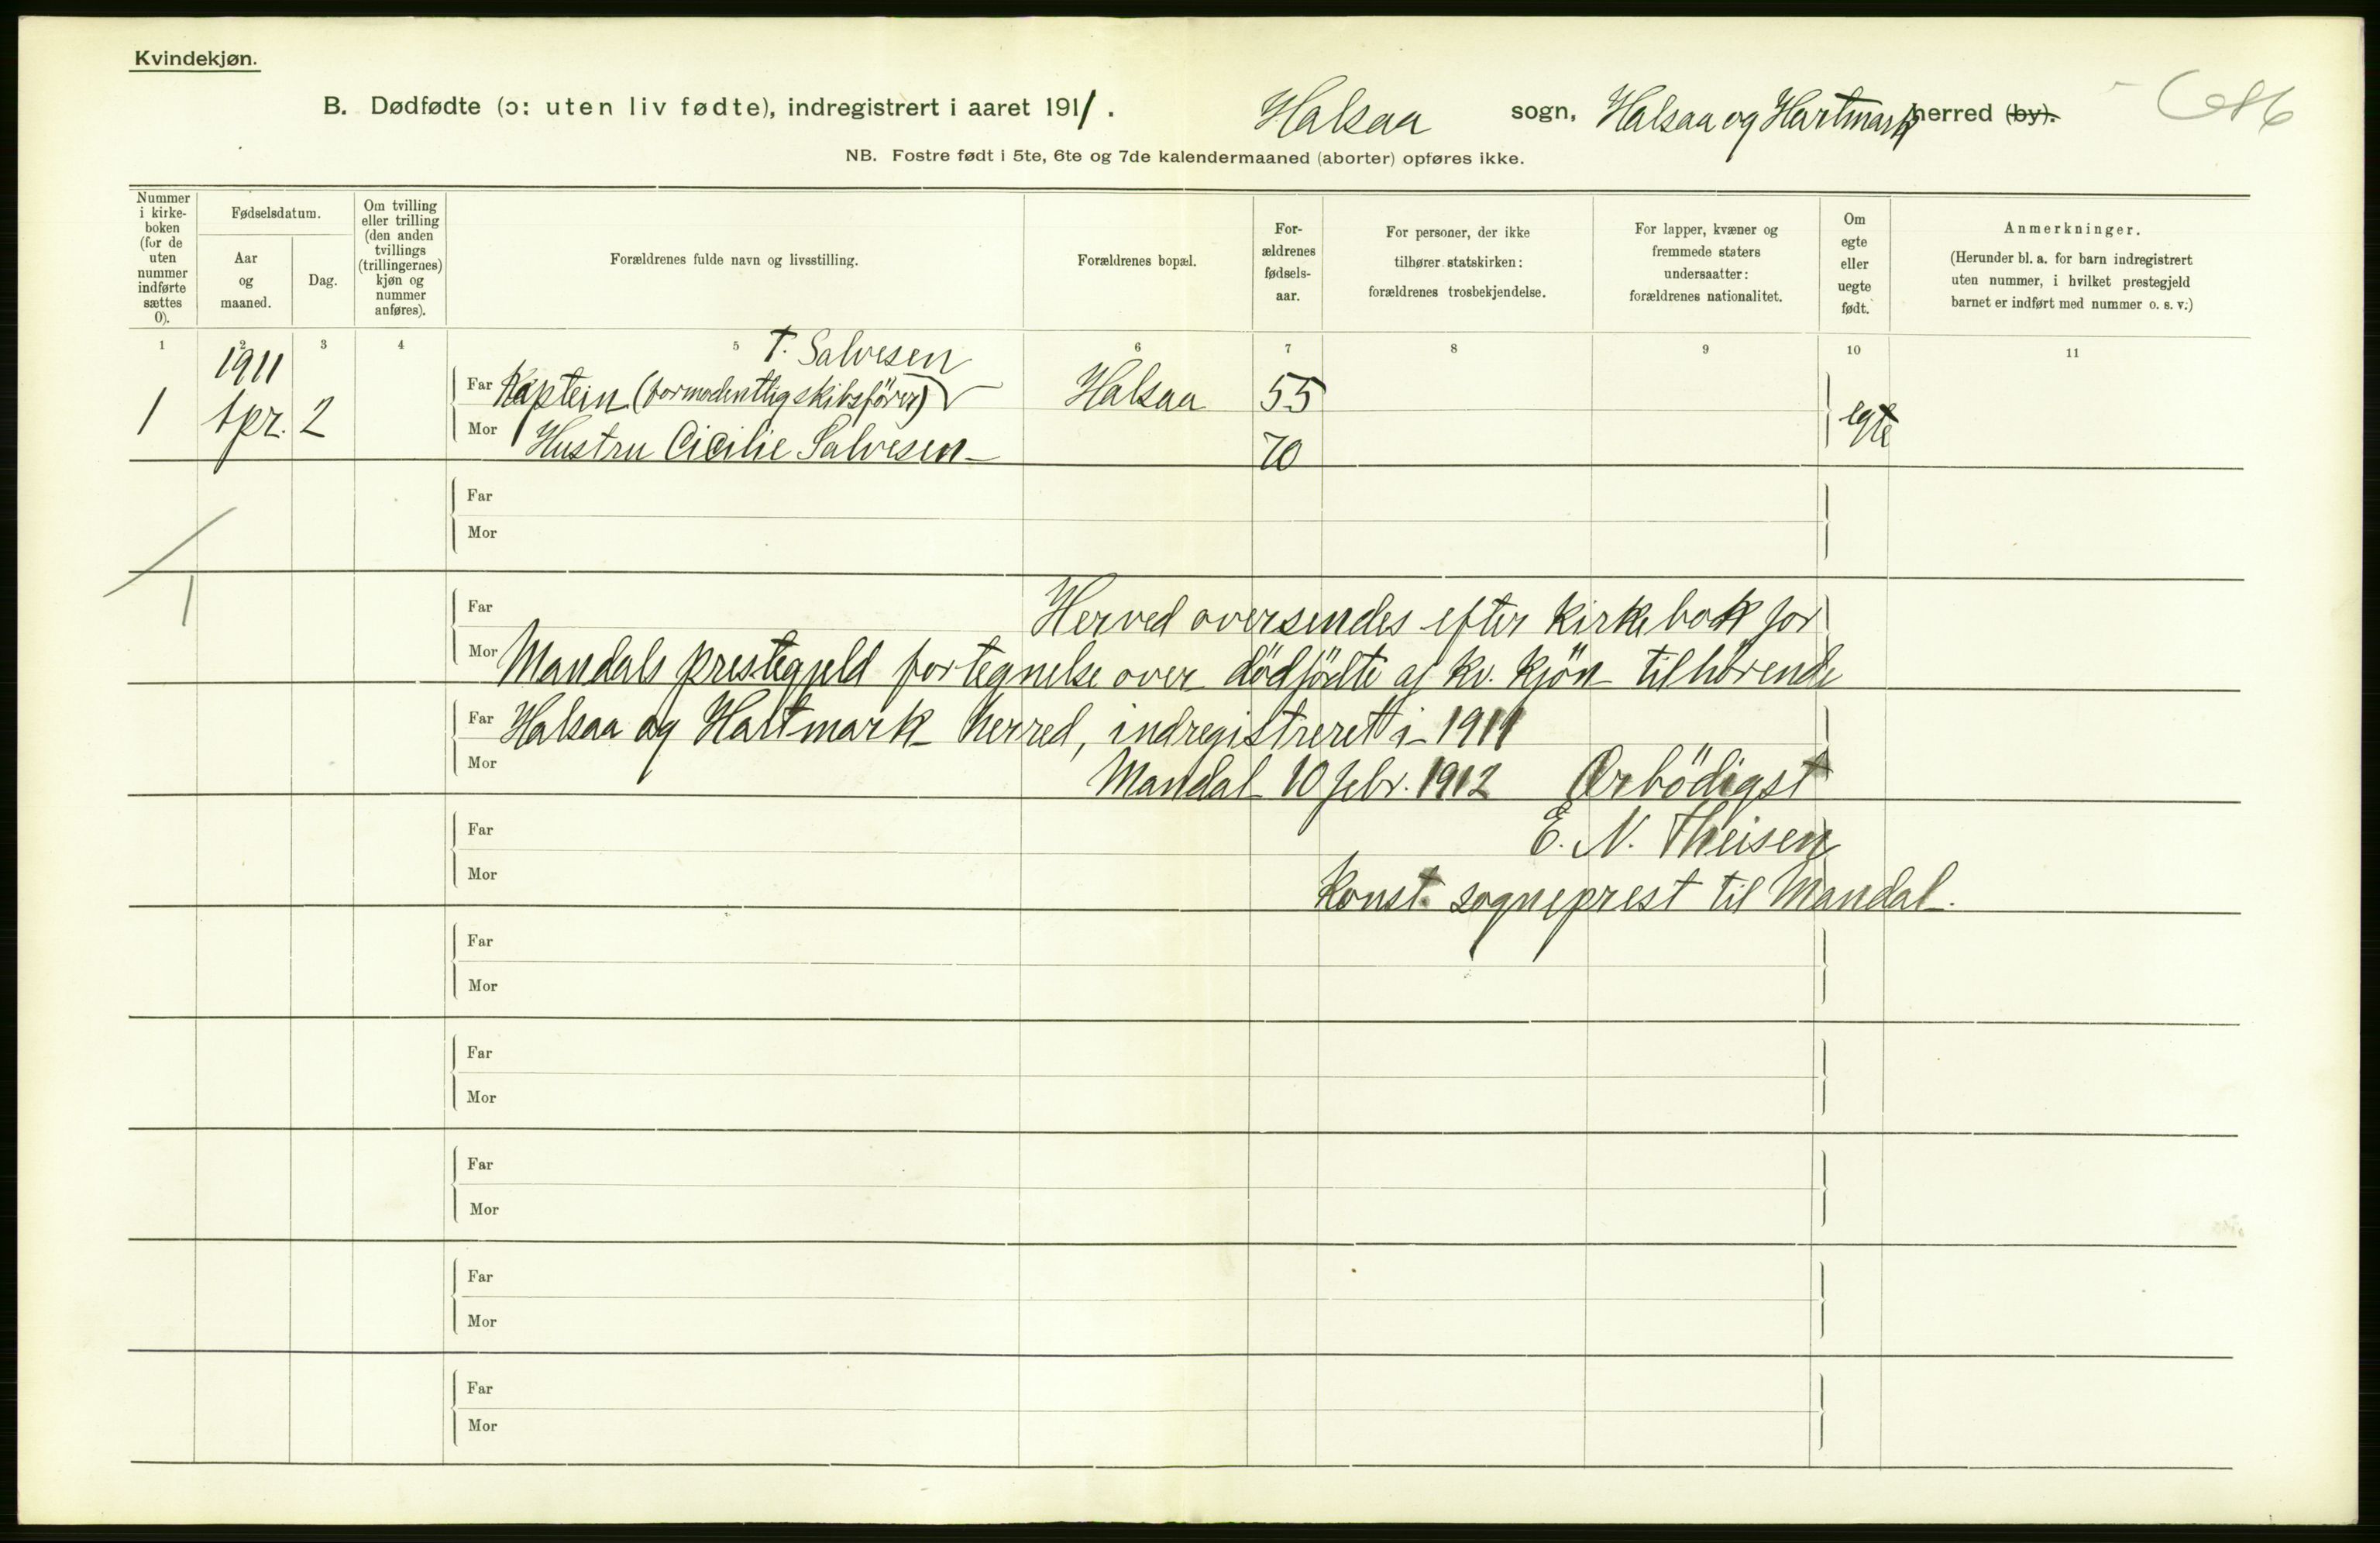 Kvindekjøn.
B. Dødfødte (ɔ: uten liv fødte), indregistrert i aaret 1911. Halsaa sogn, Halsaa og Hartmark herred (by).
NB. Fostre født i 5te, 6te og 7de kalendermaaned (aborter) opføres ikke.
Nummer i kirke-boken (for de uten nummer indførte sættes 0).
Fødselsdatum.
Aar og maaned.
Dag.
Om tvilling eller trilling (den anden tvillings (trillingernes) kjøn og nummer anføres).
Forældrenes fulde navn og livsstilling.
Forældrenes bopæl.
For-ældrenes fødsels-aar.
For personer, der ikke tilhører statskirken: forældrenes trosbekjendelse.
For lapper, kvæner og fremmede staters undersaatter: forældrenes nationalitet.
Om egte eller uegte født.
Anmerkninger.
(Herunder bl. a. for barn indregistrert uten nummer, i hvilket prestegjeld barnet er indført med nummer o. s. v.)
1 2 3 4 5 6 7 8 9 10 11
1911 T. Salvesen
Far Kaptein (formodentlig skibsfører) Halsaa 55
1 Apr. 2 egte
Mor Hustru Cicilie Salvesen 70
Far
Mor
1
Far Herved oversendes efter kirkebok for
Mor Mandals prestegjeld fortegnelse over dödfödte af kv. kjön tilhörende
Far Halsaa og Hartmark herred, indregistreret i 1911
Mor Mandal 10 febr. 1912 Ærbödigst
Far E. N. Theisen
Mor konst. sogneprest til Mandal.
Far
Mor
Far
Mor
Far
Mor
Far
Mor
Far
Mor